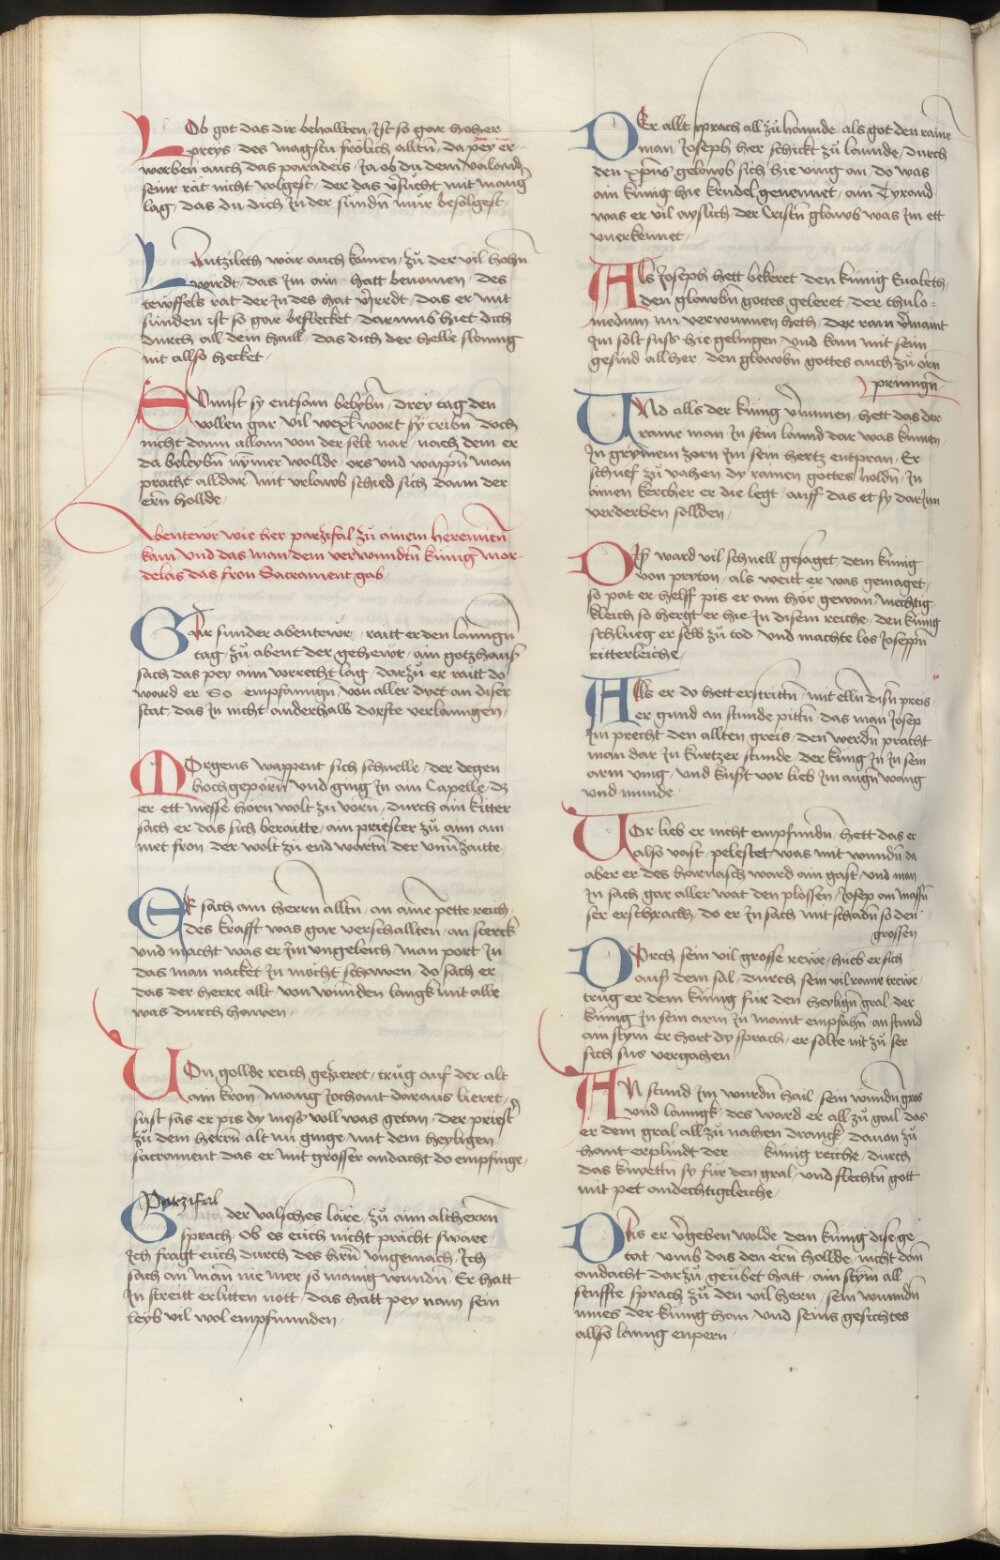 LOb got das dir behallten / Ist so gar hoher
preys des magstu frölich alltn / da pey er-
worben auch das paradeis / Ja ob du dem valand
seinr rat nicht volgest / der das v̈sůcht mit manig
lag / das du dich In der sündn̄ mur besolgest /
LAntzileth wär auch komen / zů der vil hohn̄
wirdt / das Im ain hatt benomen / des
tewffels rat der In des hat v̈irrdt / das er mit
sunden ist so gar beflecket / darumb hiet dich
durch all dein haill / das dich der helle slanng
nit allso hecket /
SUnnst sy entsam belybn̄ / drey tag den
vollen gar / vil wexl wort sy tribn̄ / doch
nicht dann allain von der sele nar / nach dem er
da beleybn̄ nym̄er wollde / ors vnd wappn̄ man
pracht alldar / mit vrlawb schied sich dann der
ern̄ hollde /
Abentewr wie her parzifal zů ainem heremiten
kam vnd das man dem verwundtn̄ künig mor-
delas das fron Sacrament gab /
GAr sunder abentewr / raitt er den lanngn̄
tag / zů abent der gehewr / ain gotzhaus
sach das pey ainn vorrecht lag / darzů er raitt do
ward er so empfanngn̄ / von aller diet an diser
stat / das In nicht anderhalb dorffte verlanngen /
MOrgens wappent sich schnelle / der degen
hochgeporn̄ / vnd ging In ain Capelle / dz
er ett messe horn wolt zu vorn / durch ain kitter
sach er das sich beraitte / ain priester zů ainn am-
met fron der wolt zu end wartn̄ der vnu͂zaitte /
ER sach ain herrn alltn̄ / an aine pette reich /
des krafft was gar verschallten / an sterck
vnd macht was er Im vngeleich / man port In
das man nacket In mocht schowen / do sach er
das der herre allt / von wunden langk mit alle
was durch hawen /
VOn gollde reich gezieret / trůg auf der alt
ain kron / manig Jochant daraus lieret /
sust sas er pis dy mess voll was getan / der priestr̄
zů dem herrn̄ alt nu ginge / mit dem heyligen
sacrament das er mit grosser andacht do empfinge /
Parzifal
der valsches läre / zů ainn altherrn̄
sprach / ob es euch nicht pracht sware
Ich fragt euch durch des hrn̄ vngemach / Ich
sach an man̄ nie mer so manig wundn̄ / Er hatt
In streitt erlitten nott / das hatt pey nam sein
leyb vil wol empfunnden /
DEr allt sprach all zů hannde / als got den raine
man / Joseph her schickt zů lannde / durch
den xp̄us gelawb sich hie ving an / do was
ain künig hie krudel genennet / ain Tyrand
was er vil ayslich der Cristn̄ glawb was Im ett
vnerkennet /
ALs Joseph hett bekeret / den künig Eualeth /
den glawbn̄ gottes geleret / der thulo-
medum nu verwunnen heth / der rain v̈maint
Im solt suss hie gelingen / vnd kam mit sein
gesind allher / den glawbn gottes auch zů ern̄
pringn̄
VNd alls der künig v̈nummen / hett das der
raine man / In sein lannd dar was kummen
In grymem zorn Im sein hertz entpran / Er
schuef zu vahen dy rainen gottes holdn̄ / In
ainen kercher er die legt / auff das et sy darJnn
verderben sollden /
DIss ward vil schnell gesaget / dem künig
von pryton / als weitt er was gemaget /
so pat er helff pis er ain hör gewan / mechtig
kleich so hergt er hie In disem reiche / den künig
schlueg er selb zu tod / vnd machte los Josepp̄n
ritterleiche /
ALls er do hett erstrittn̄ / mit ellu disn̄ preis
er gund an stunde pittn̄ / das man Josep
Im precht den allten greis / den werdn̄ pracht
man dar In kurtzer stunde / der künig In In sein
arm ving / vnd kust vor lieb Im augn̄ wang
vnd munde /
VOr lieb er nicht empfundn̄ / hett das er
also vast / pelestet was mit wundn̄ da
aber er des harnasch ward ain gast / vnd man
In sach gar aller wat den plossen / Josep an massn̄
ser erschrackh / do er In sach mit schadn̄ so den
grossen
DVrch sein vil grosse rewe / hueb er sich
auf dem sal / durch sein vil raine trewe
trůg er dem künig für den heylign̄ gral / der
künig In sein arm In maint empfahn̄ / an stund
ain stym er hort dy sprach / er solte nit zů ser
sich sus vergahen
AN stund Im wurdn̄ hail / sein wundn̄ gros
vnd lanngk / des ward er all zu gail / das
er dem gral all zů nahen dranngk / dauon zů
hant erplindt der künig reiche / durch
das knyettn̄ sy für den gral / vnd flechtn̄ gott
mit pet andechtigkleiche /
DAs er v̈geben wolde / dem künig dise ge-
tat / vmb das den ern̄ hollde / nicht dan̄
andacht darzů geübet hatt / ain stym all
senffte sprach zů den vil hern / sein wundn̄
mues der künig han / vnd seins gesichtes
allso lanng enpern /